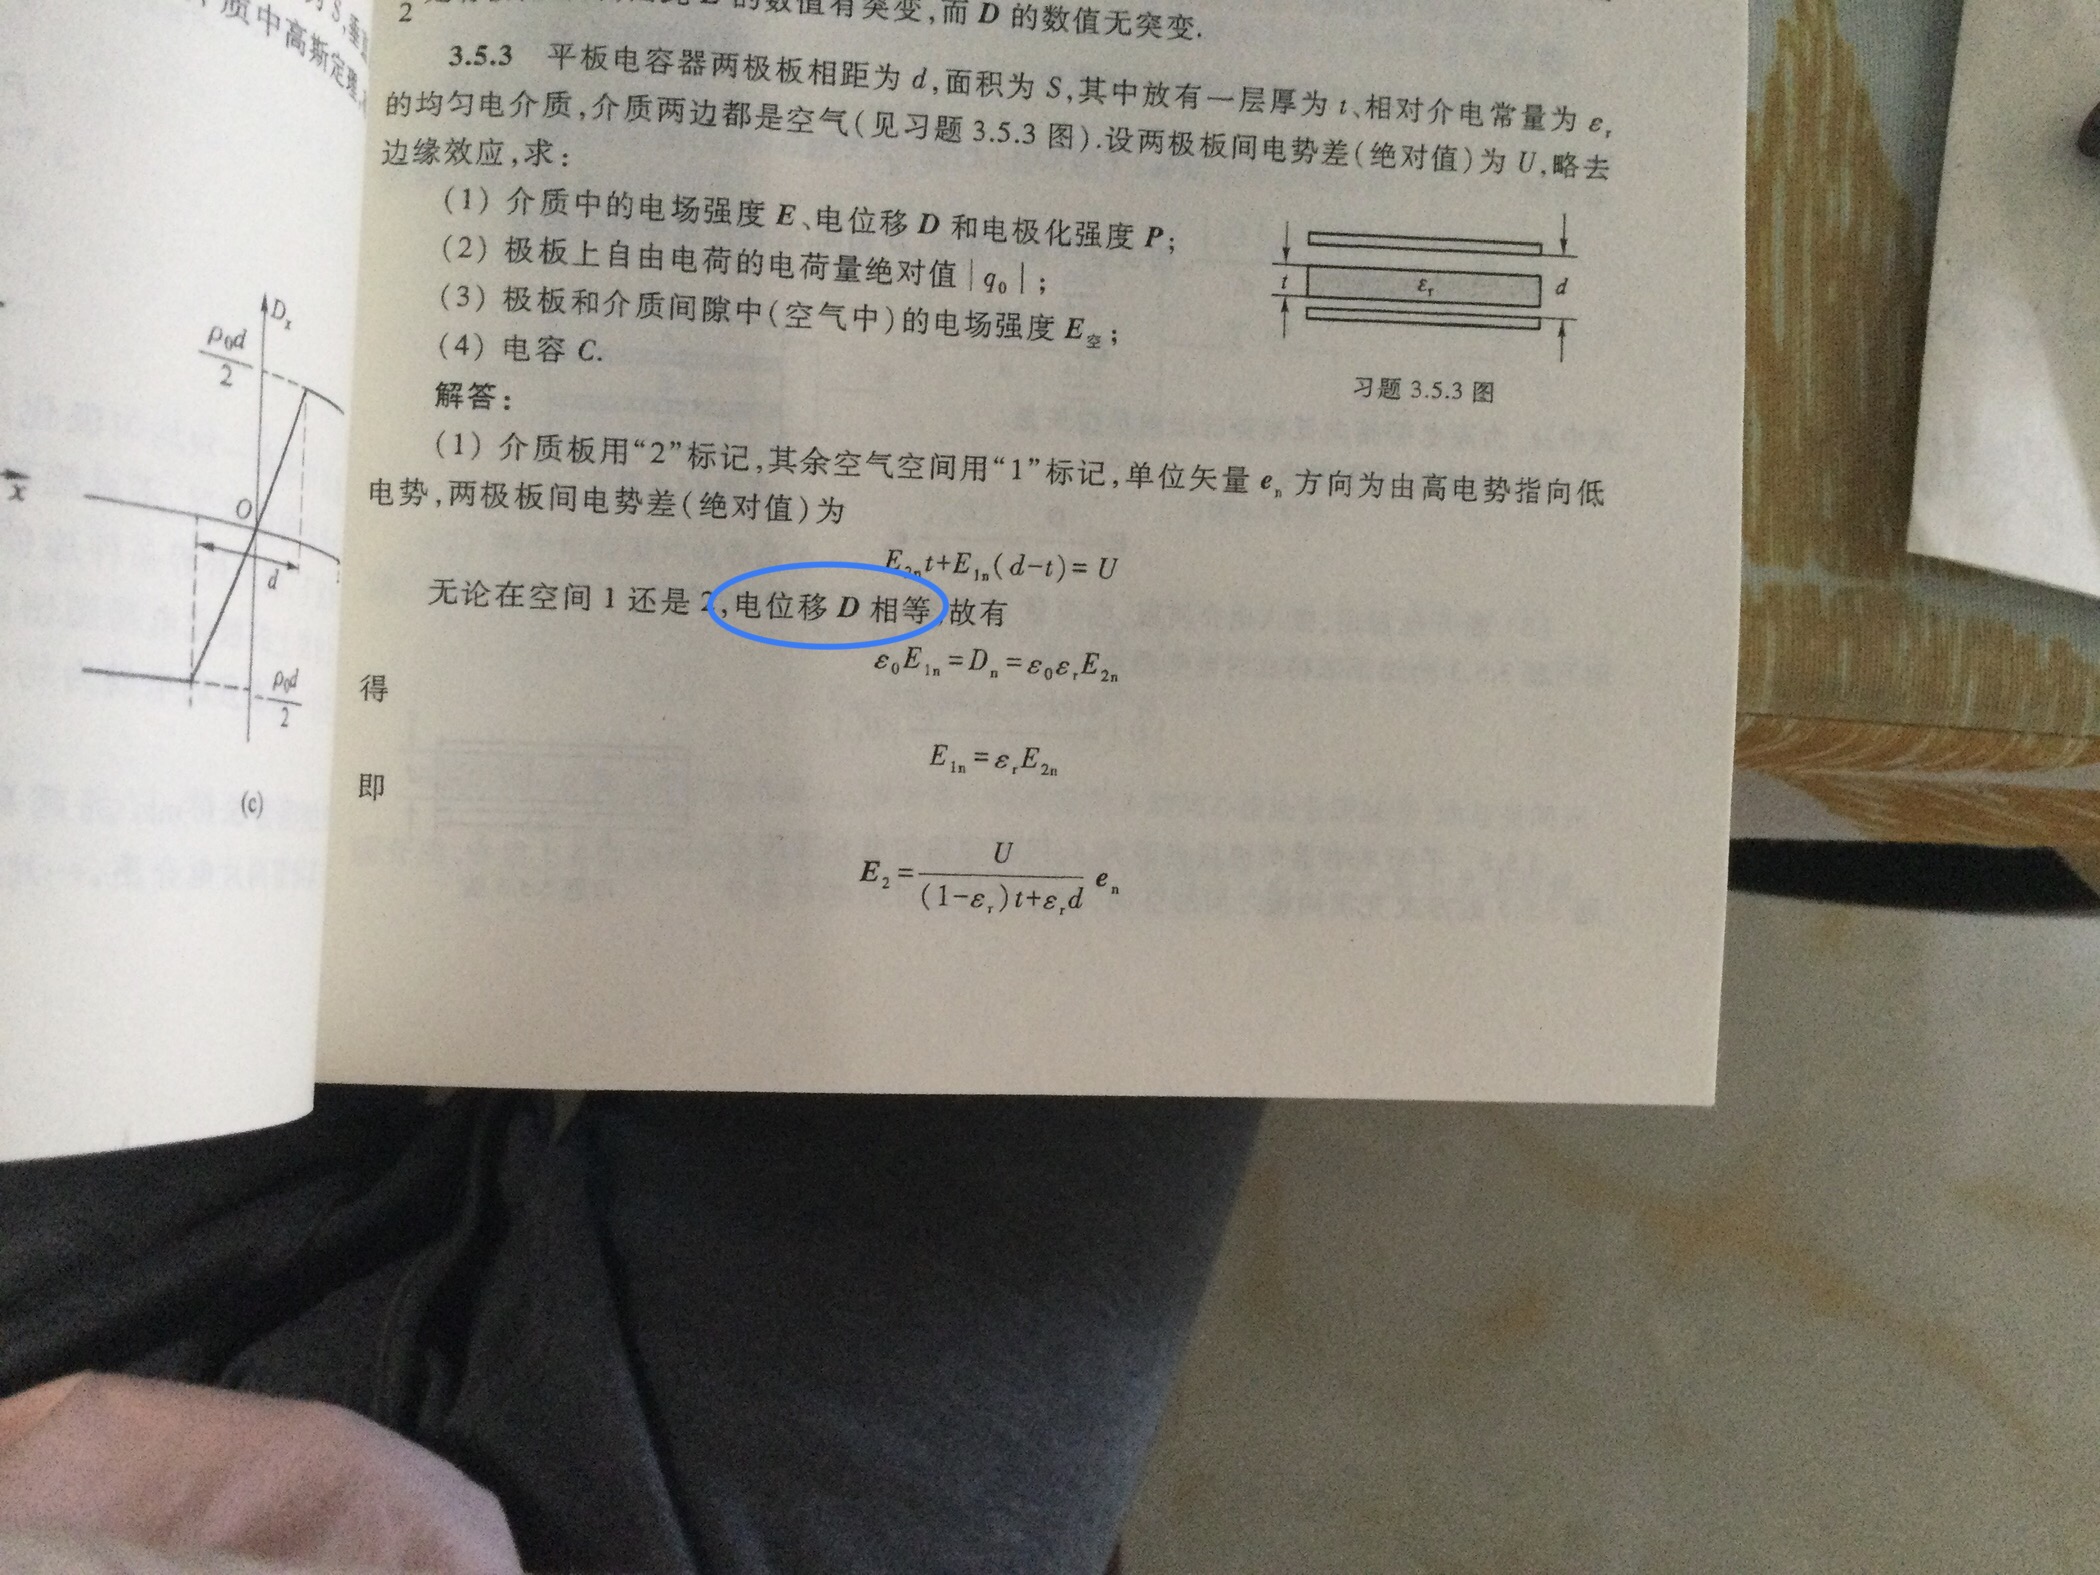 质中高斯定理
D_x
ρ₀d/2
O
x
d
-ρ₀d/2
(c)
的数值有突变,而 D 的数值无突变.
3.5.3 平板电容器两极板相距为 d,面积为 S,其中放有一层厚为 t、相对介电常量为 ε_r
的均匀电介质,介质两边都是空气(见习题 3.5.3 图).设两极板间电势差(绝对值)为 U,略去
边缘效应,求:
(1) 介质中的电场强度 E、电位移 D 和电极化强度 P;
(2) 极板上自由电荷的电荷量绝对值|q₀|;
(3) 极板和介质间隙中(空气中)的电场强度 E_空;
(4) 电容 C.
t
ε_r
d
习题 3.5.3 图
解答:
(1) 介质板用“2”标记,其余空气空间用“1”标记,单位矢量 e_n 方向为由高电势指向低
电势,两极板间电势差(绝对值)为
E_2n t+E_1n(d-t)=U
无论在空间 1 还是 2,电位移 D 相等,故有
ε₀E_1n=D_n=ε₀ε_rE_2n
得
E_1n=ε_rE_2n
即
E₂=U/((1-ε_r)t+ε_rd) e_n